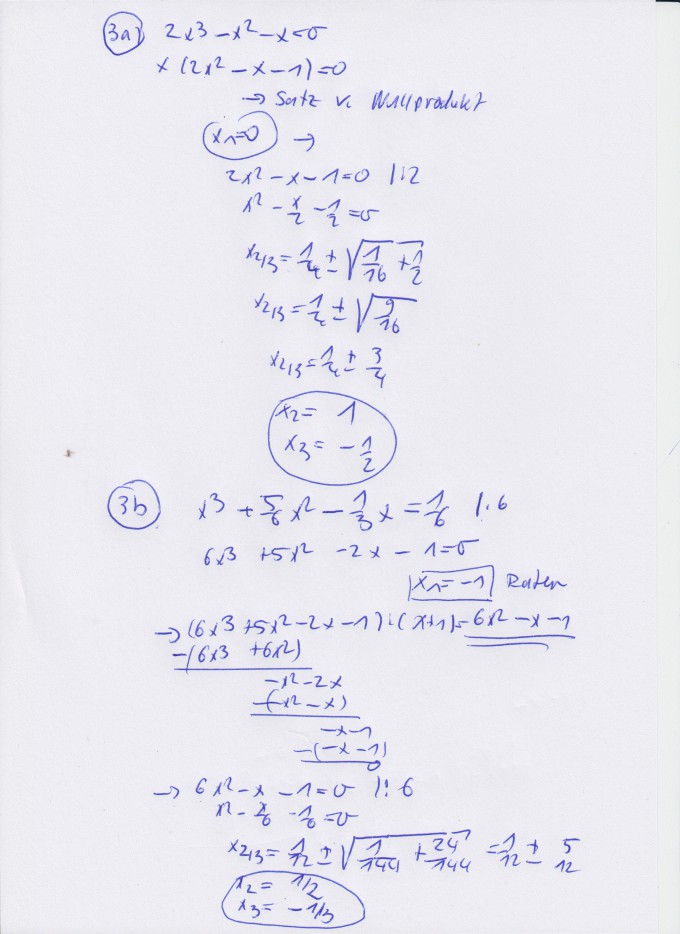 3a) 2x³ - x² - x = 0
x (2x² - x - 1) = 0
→ Satz v. Nullprodukt
x₁=0 →
2x² - x - 1 = 0 |:2
x² - x/2 - 1/2 = 0
x₂,₃ = 1/4 ± √(1/16 + 1/2)
x₂,₃ = 1/4 ± √(9/16)
x₂,₃ = 1/4 ± 3/4
x₂ = 1
x₃ = - 1/2
3b x³ + 5/6 x² - 1/3 x = 1/6 |·6
6x³ + 5x² - 2x - 1 = 0
x₁ = -1 Raten
→ (6x³ + 5x² - 2x - 1) : (x+1) = 6x² - x - 1
-(6x³ + 6x²)
-x² - 2x
-(-x² - x)
-x - 1
-(-x - 1)
0
→ 6x² - x - 1 = 0 |:6
x² - x/6 - 1/6 = 0
x₂,₃ = 1/12 ± √(1/144 + 24/144) = 1/12 ± 5/12
x₂ = 1/2
x₃ = - 1/3